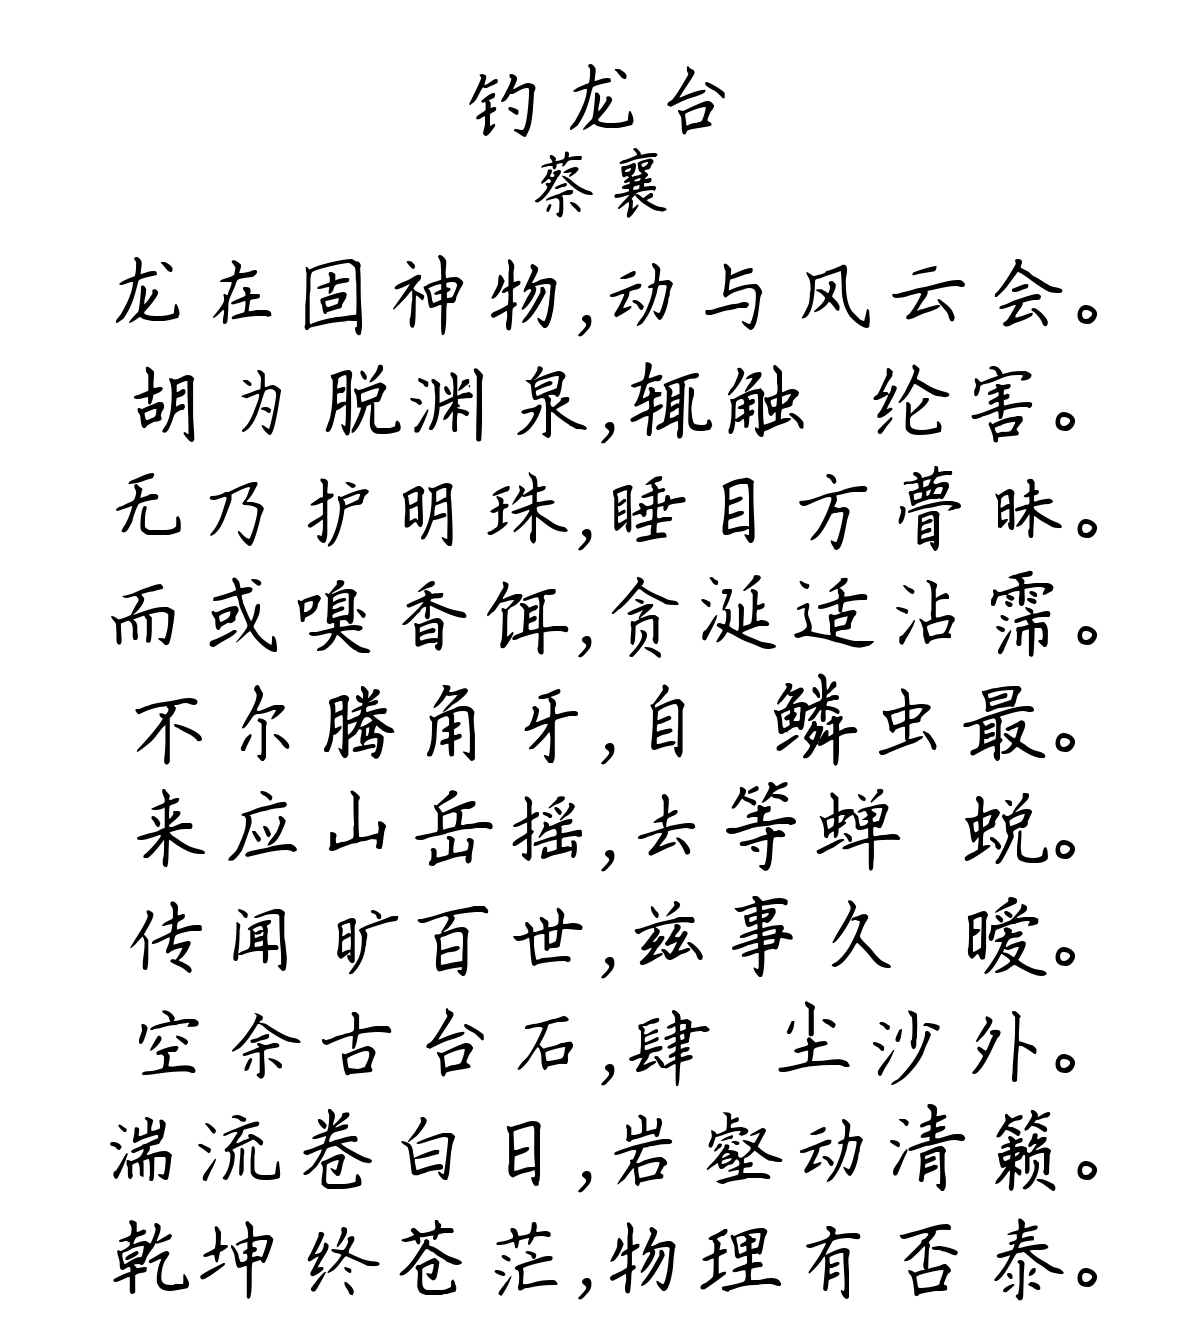 钓龙台
蔡襄
龙在固神物,动与风云会。
胡为脱渊泉,辄触 纶害。
无乃护明珠,睡目方瞢昧。
而或嗅香饵,贪涎适沾霈。
不尔腾角牙,自 鳞虫最。
来应山岳摇,去等蝉 蜕。
传闻旷百世,兹事久 暧。
空余古台石,肆 尘沙外。
湍流卷白日,岩壑动清籁。
乾坤终苍茫,物理有否泰。